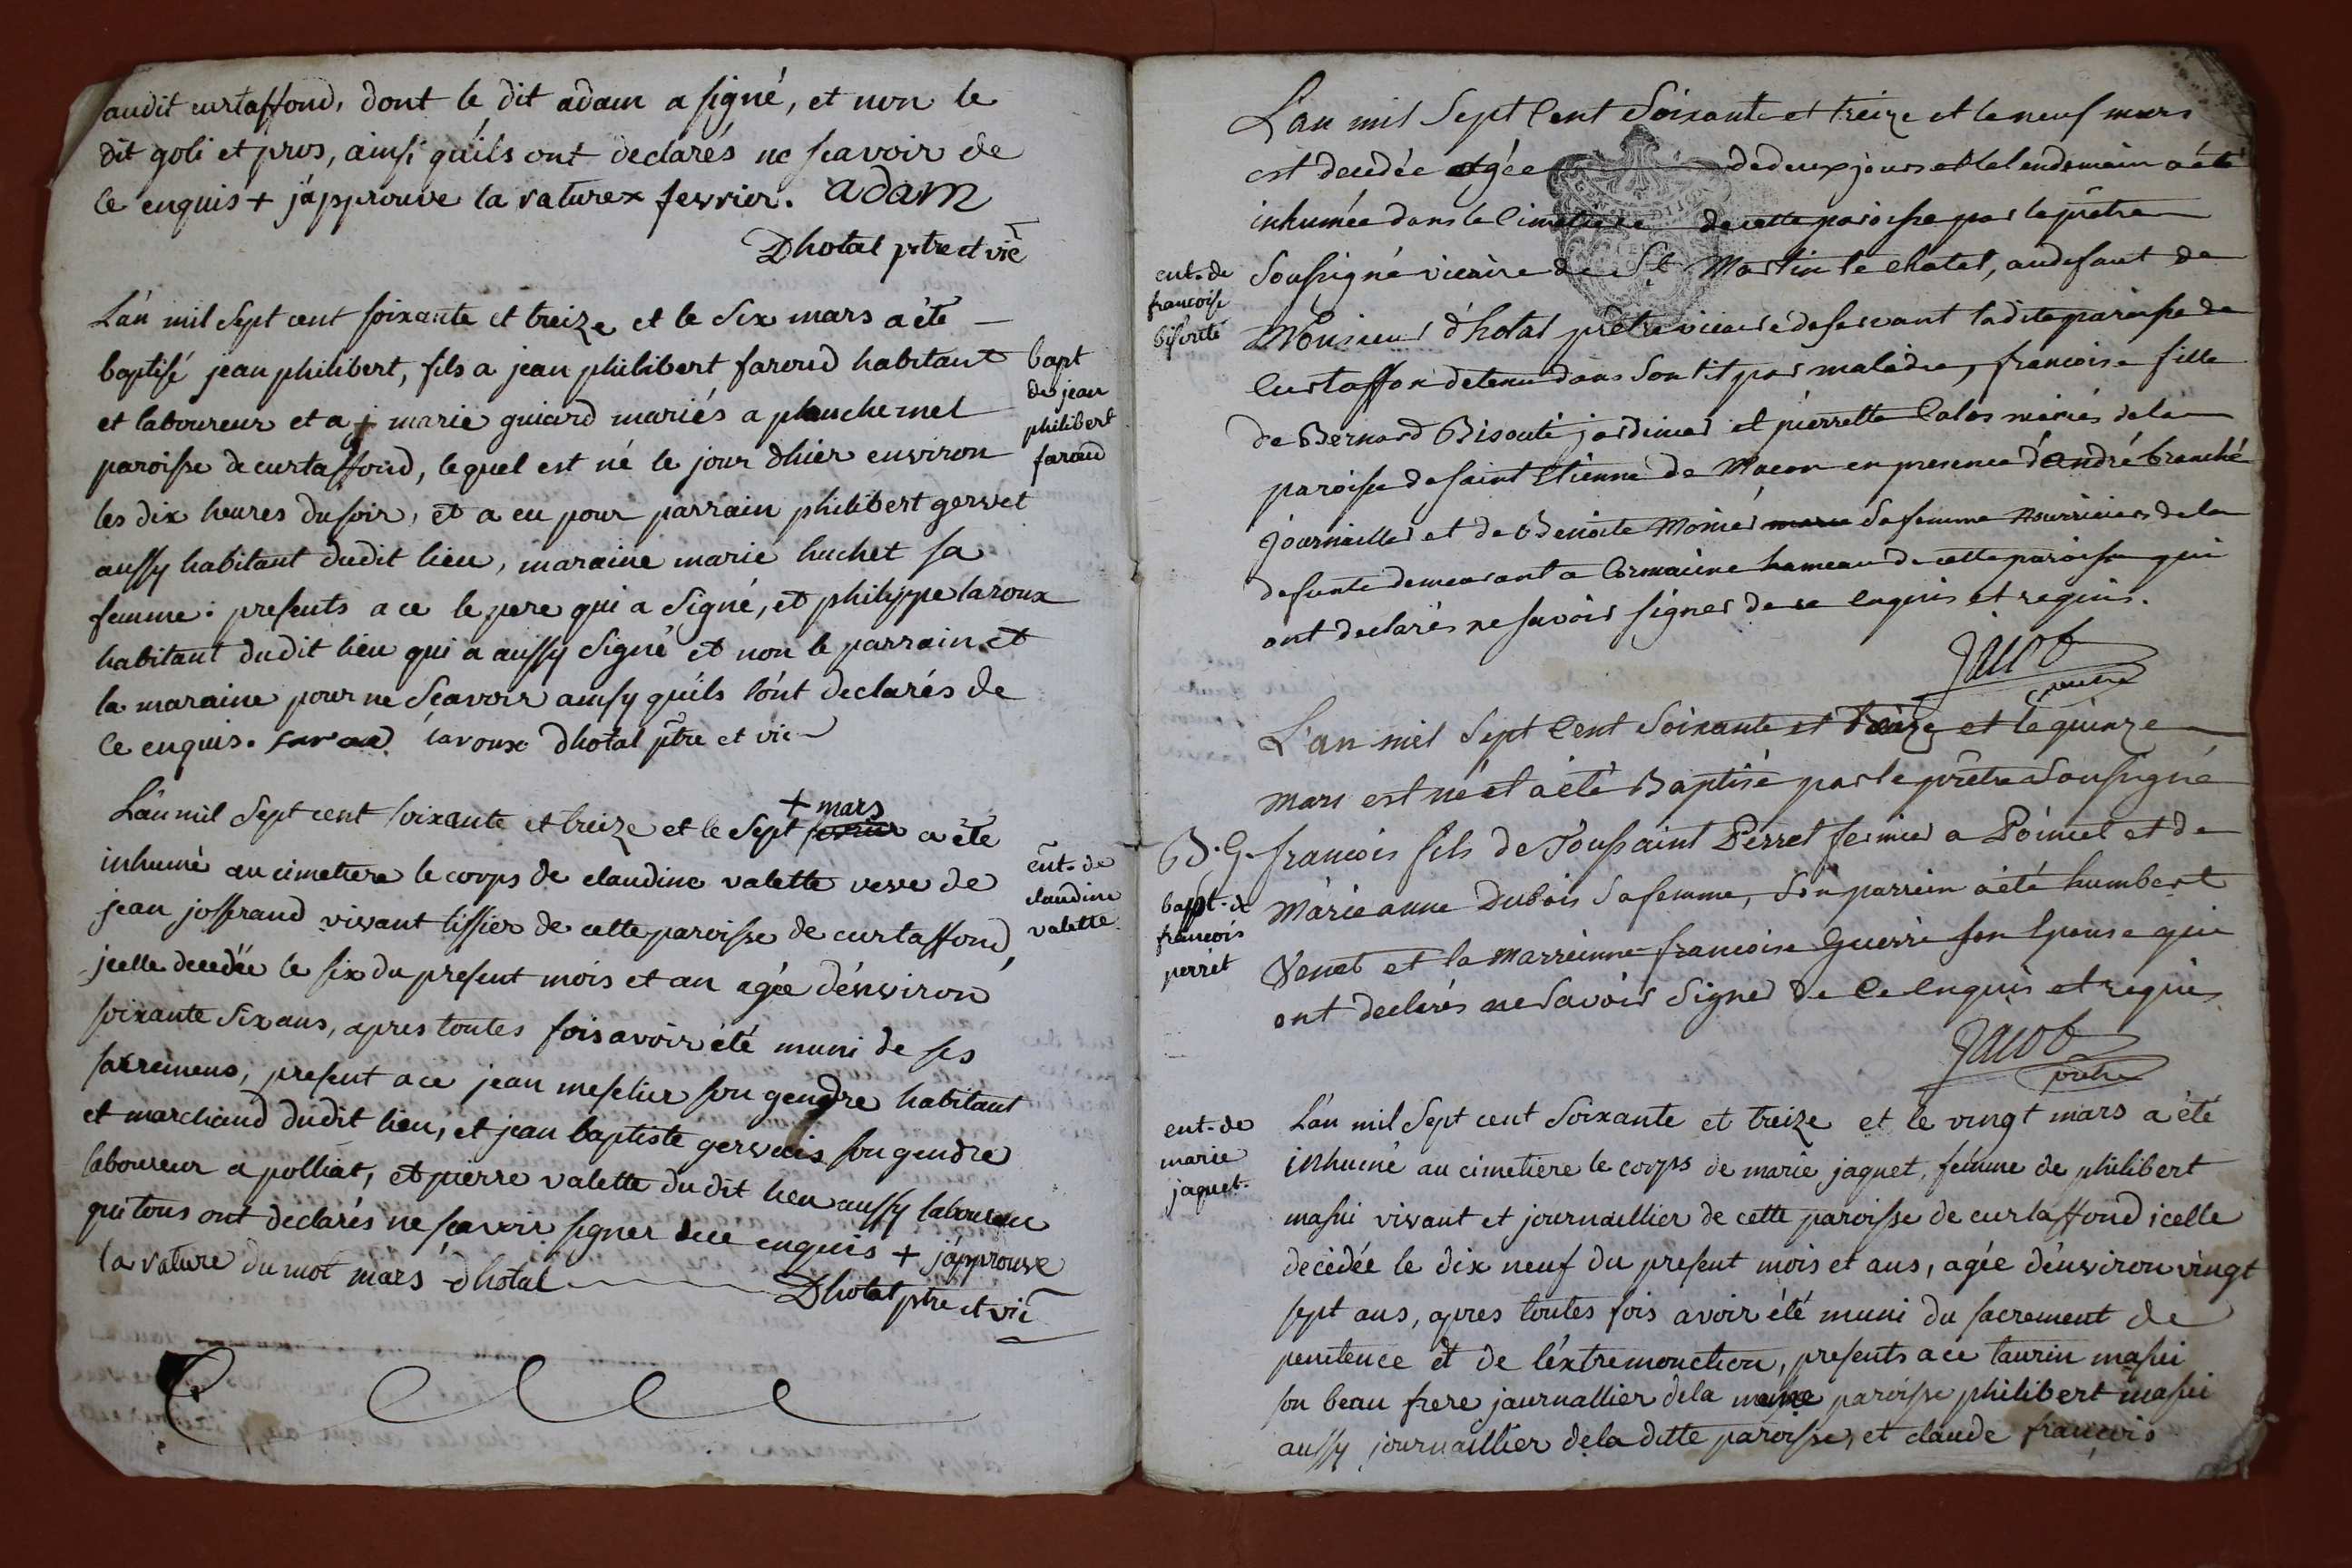 audit curtaffond, dont le dit adam a signé, et non le
dit goli et pros, ainsi quils ont declarés ne scavoir de
ce enquis + j'approuve la rature x fevrier. adam
Dhotal ptre et vic
L'an mil sept cent soixante et treize et le six mars a été
baptisé jean philibert, fils a jean philibert faroud habitant
et laboureur et a marie guiard mariés a planchemel
paroisse de curtaffond, lequel est né le jour d'hier environ
les dix heures du soir, et a eu pour parrain philibert gervet
aussy habitant dudit lieu, maraine marie huchet sa
femme: presents a ce le pere qui a signé, et philippe laroux
habitant dudit lieu qui a aussy signé et non le parrain et
la maraine pour ne scavoir ainsy quils l'ont declarés de
ce enquis. laroux Dhotal ptre et vic
bapt
de jean
philibert
faroud
L'an mil sept cent soixante et treize et le sept fevrier + mars a été
inhumé au cimetiere le corps de claudine valette veve de
jean josserand vivant tissier de cette paroisse de curtaffond,
jcelle decedée le six du present mois et an agée d'environ
soixante six ans, apres toutes fois avoir été muni de ses
sacremens, present a ce jean meslier son gendre habitant
et marchand dudit lieu, et jean baptiste gervais son gendre
laboureur a polliat, et pierre valette du dit lieu aussy laboureur
qui tous ont declarés ne scavoir signer de ce enquis + j'approuve
la rature du mot mars Dhotal Dhotal ptre et vic
ent. de
claudine
valette
L'an mil sept cent soixante et treize et le neuf mars
est decedée agée de deux jours et le lendemain a été
inhumée dans le cimetiere de cette paroisse par le prêtre
soussigné vicaire de St Martin le chatel, au defaut de
Monsieur d'hotal prêtre vicaire deservant ladite paroisse de
Curtaffon detenu dans son lit par maladie, francoise fille
de Bernard Bisouté jardinier et pierrette Calas mariés de la
paroisse de saint Etienne de Macon en presence d'andré branché
journaillier et de Benoite Monier marie sa femme nourriciers de la
defunte demeurant a Cormaine hameau de cette paroisse qui
ont declarés ne savoir signer de ce enquis et requis.
Jacob
pretre
ent. de
francoise
bisouté
L'an mil sept cent soixante et treize et le quinze
mars est né et a été Baptisé par le prêtre soussigné
B.G. francois fils de Toussaint Perret fermier a Poimel et de
Marieanne Dubois sa femme, son parrein a été humbert
Venet et la marreinne francoise Guerri son Epouse qui
ont declarés ne savoir signer de ce enquis et requis
Jacob
pretre
bapt. de
francois
perret
L'an mil sept cent soixante et treize et le vingt mars a été
inhumé au cimetiere le corps de marie jaquet, femme de philibert
masui vivant et journaillier de cette paroisse de curtaffond icelle
decedée le dix neuf du present mois et ans, agée d'environ vingt
sept ans, apres toutes fois avoir été muni du sacrement de
penitence et de l'éxtremonction, presents a ce taurin masui
son beau frere jaurnallier de la meme paroisse philibert masui
aussy journaillier de la ditte paroisse, et claude francois
ent. de
marie
jaquet.